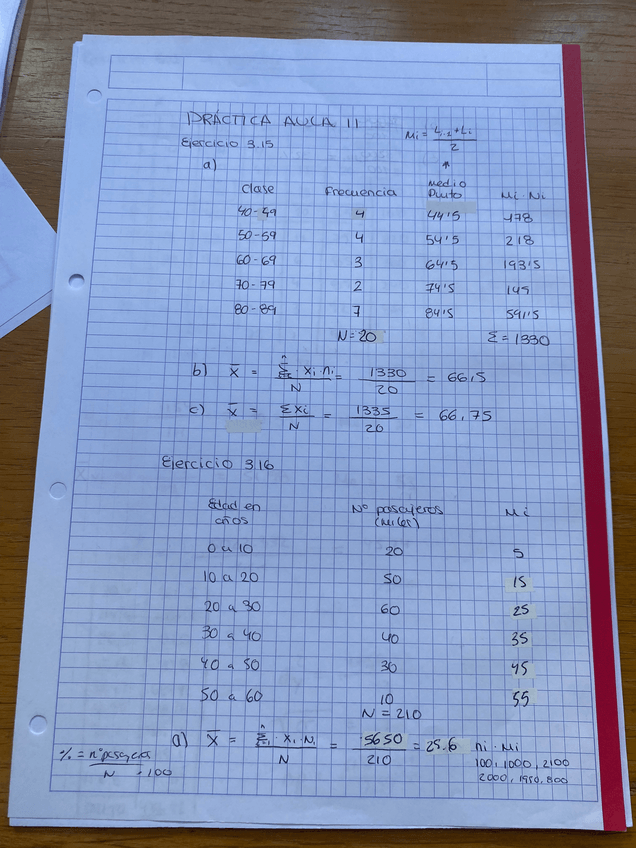 PRÁCTICA AULA 11
Mi = Li-1 + Li / 2
Ejercicio 3.15
a)
Clase Frecuencia medio Punto Mi · Ni
40-49 4 44'5 178
50-59 4 54'5 218
60-69 3 64'5 193'5
70-79 2 74'5 149
80-89 7 84'5 591'5
N=20 Σ = 1330
b) x̄ = Σ xi · ni / N = 1330 / 20 = 66,5
c) x̄ = Σxi / N = 1335 / 20 = 66,75
Ejercicio 3.16
Edad en años Nº pasajeros (miles) Mi
0 a 10 20 5
10 a 20 50 15
20 a 30 60 25
30 a 40 40 35
40 a 50 30 45
50 a 60 10 55
N = 210
a) x̄ = Σ xi · Ni / N = 5650 / 210 = 25.6 ni · Mi
% = nº / N · 100
100, 1000, 2100
2000, 1950, 800